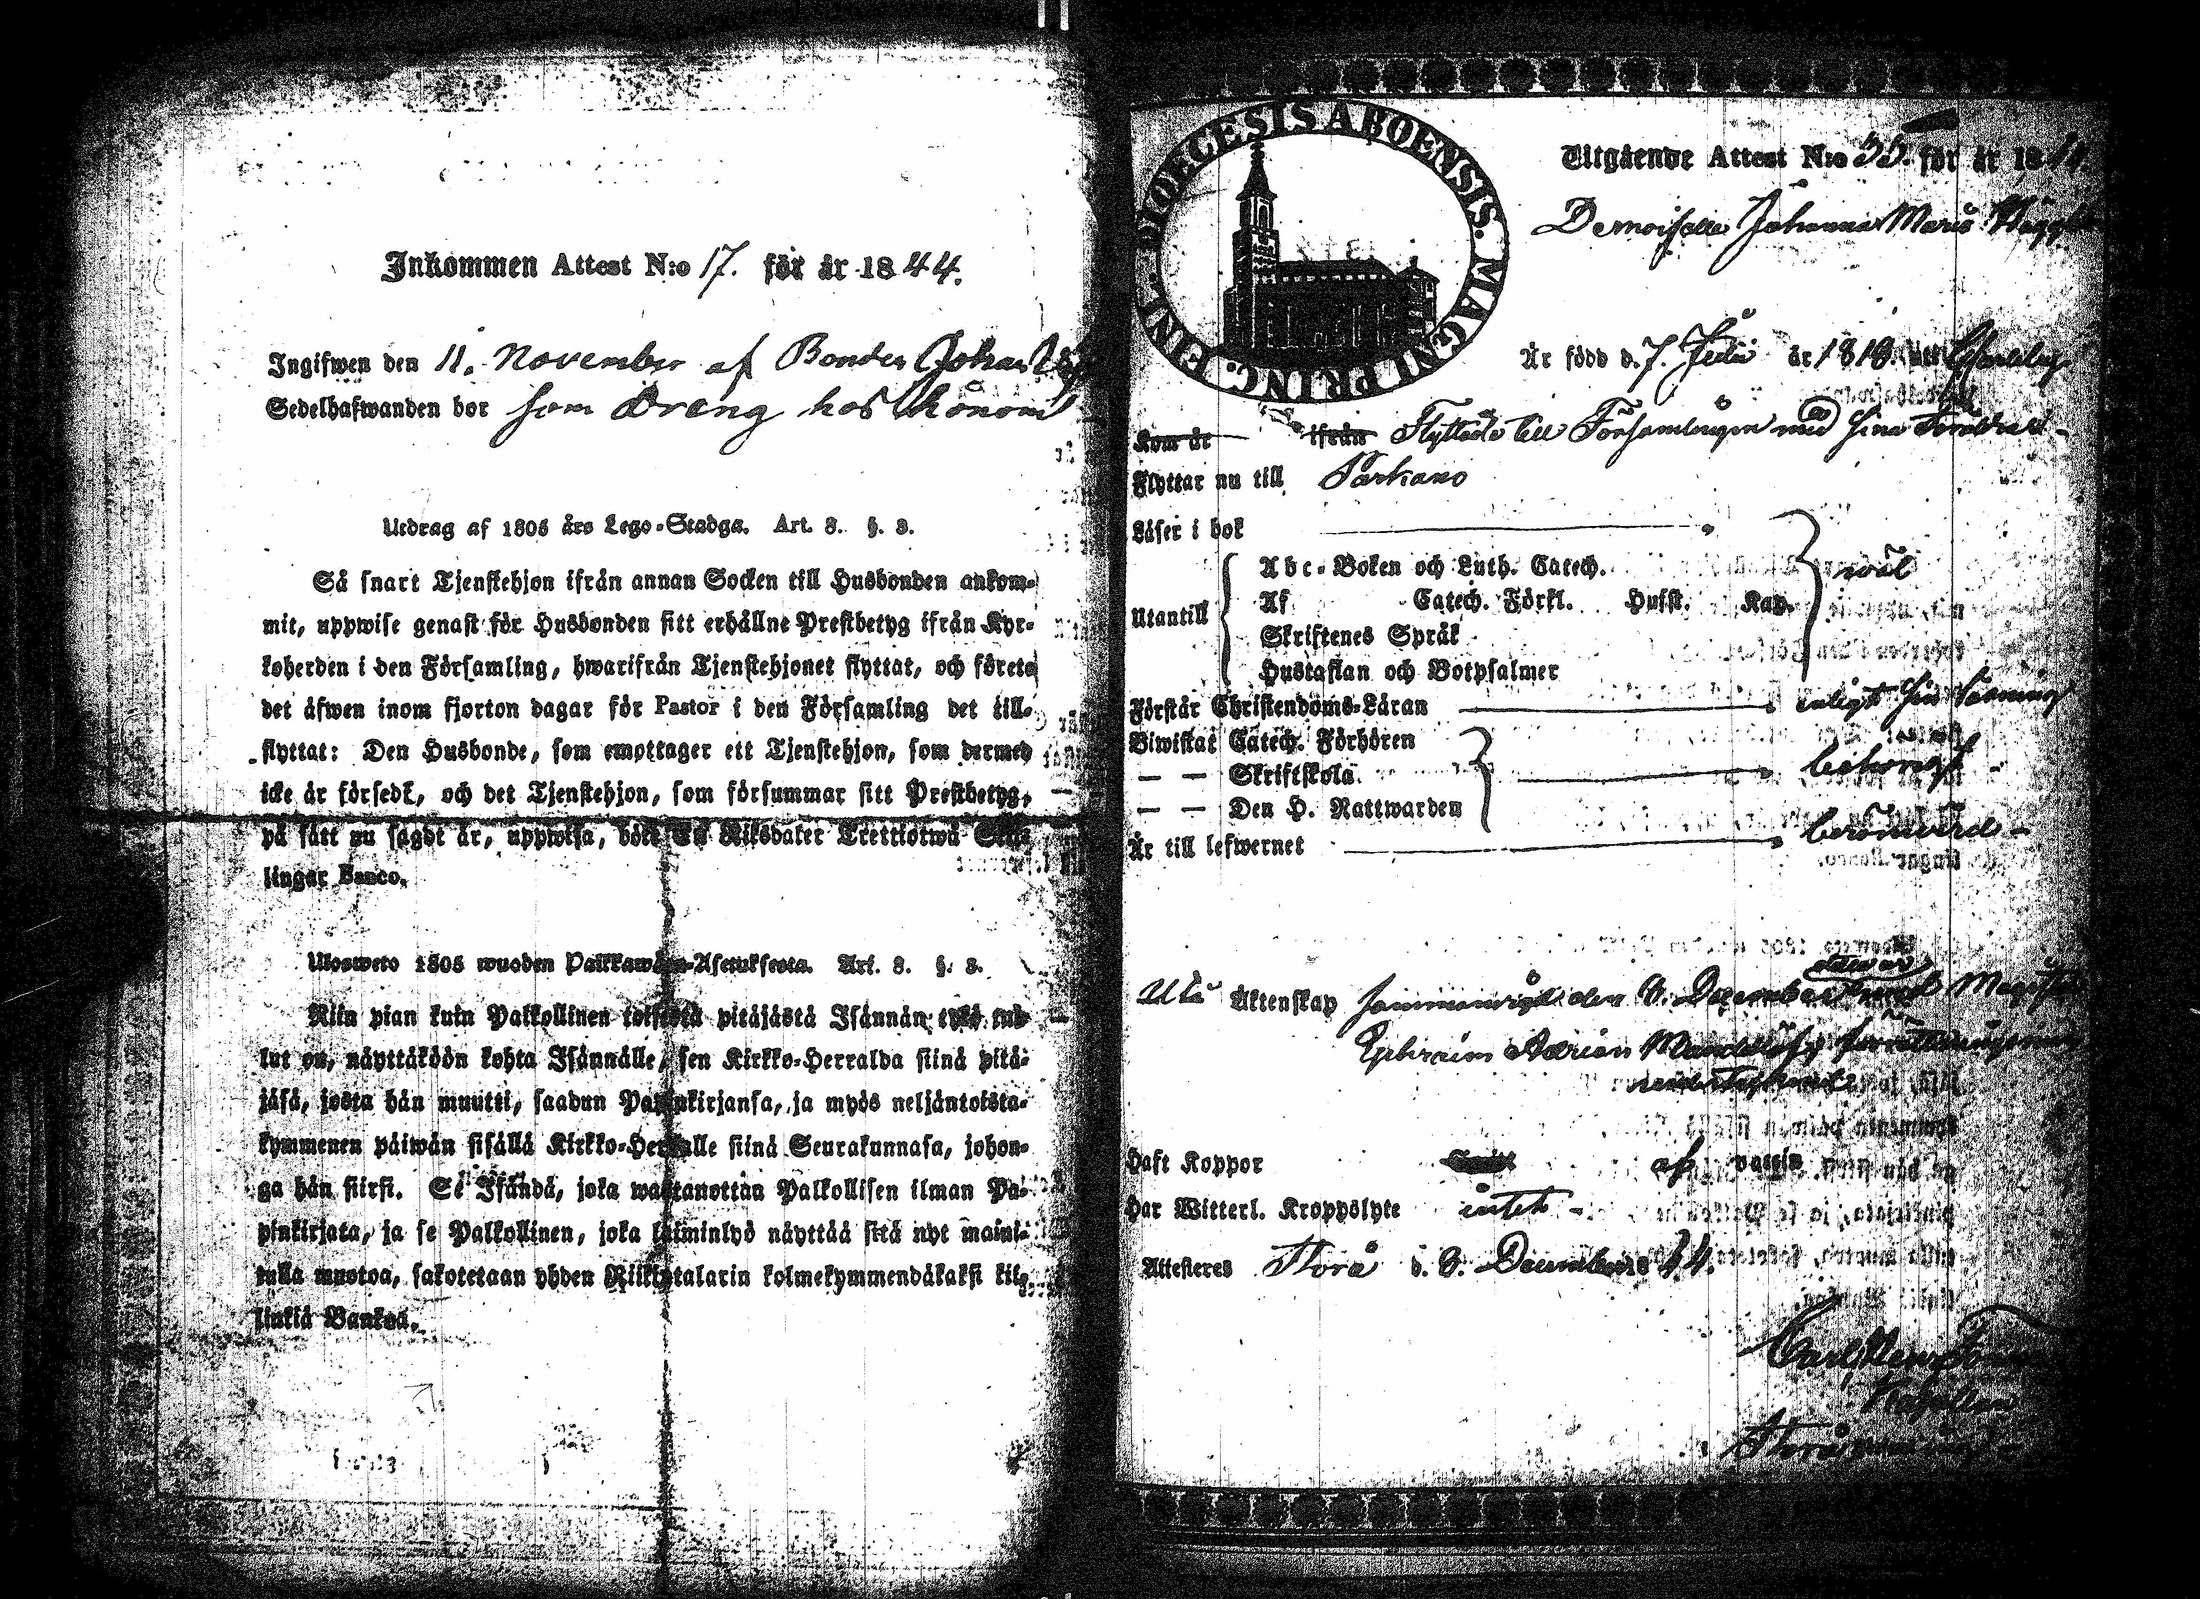 Inkommen Attest N:o 17. för år 1844.
Ingifwen den 11. November af Bonden Johan
Sedelhafwanden bor som Dreng hos
Utdrag af 1805 års Lego-Stadga. Art. 8. §. 3.
Så snart Tjenstehjon ifrån annan Socken till Husbonden ankom-
mit, uppwise genast för Husbonden sitt erhållne Prestbetyg ifrån Kyr-
koherden i den Församling, hwarifrån Tjenstehjonet flyttat, och förete
det äfwen inom fjorton dagar för Pastor i den Församling det till-
flyttat: Den Husbonde, som emottager ett Tjenstehjon, som dermed
icke är försedt, och det Tjenstehjon, som försummar sitt Prestbetyg,
på sätt nu sagdt är, uppwisa, böte En Riksdaler Trettiotwå Skil-
lingar Banco.
Ulosweto 1805 wuoden Palkkawäen-Asetuksesta. Art. 8. §. 3.
Niin pian kuin Palkollinen toisesta pitäjästä Isännän tykö tul-
lut on, näyttäköön kohta Isännälle, sen Kirkko-Herralda siinä pitä-
jäsä, josta hän muutti, saadun Papinkirjansa, ja myös neljäntoista-
kymmenen päiwän sisällä Kirkko-Herralle siinä Seurakunnasa, johon-
ga hän siirsi. Se Isändä, joka wastanottaa Palkollisen ilman Pa-
pinkirjata, ja se Palkollinen, joka laiminlyö näyttää sitä nyt maini-
tulla muotoa, sakotetaan yhden Riikintalarin kolmekymmendäkaksi kil-
linkiä Bankoa.
DIOECESIS ABOENSIS. MAGNI PRINC. FINL.
Utgående Attest N:o 55. för år 18
Demoiselle Johanna Maria
Är född d. 7. Juli år 1818. uti
Kom år ifrån Flyttade till Församlingen med sina Föräldrar
Flyttar nu till Parkano
Läser i bok
Utantill
Abc-Boken och Luth. Catech.
Af Catech. Förkl. Husst. Kap.
wäl
Skriftenes Språk
Hustaflan och Botpsalmer
Förstår Christendoms-Läran enligt sin läsning
Biwistat Catech. Förhören
— — Skriftskola
behörigt
— — Den H. Nattwarden
Är till lefwernet berömwärd
Uti Äktenskap sammanvigd den 6. December med
Ephraim Adrian
Haft Koppor af
Har Witterl. Kroppslyte intet
Attesteras Storå d. 8. December 44.
Carl
Storå